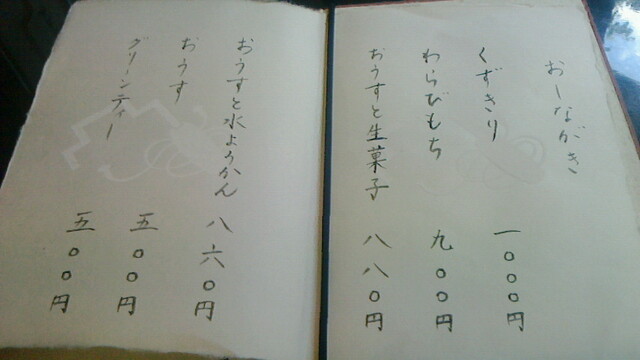 おしながき
くずきり 一〇〇〇円
わらびもち 九〇〇円
おうすと生菓子 八八〇円
おうすと水ようかん 八六〇円
おうす 五〇〇円
グリーンティー 五〇〇円